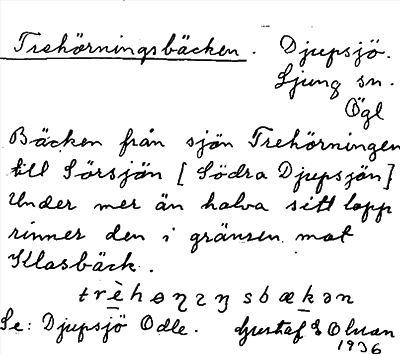 Trehörningsbäcken. Djupsjö.
Ljung sn.
Ögl
Bäcken från sjön Trehörningen
till Sörsjön [Södra Djupsjön]
Under mer än halva sitt lopp
rinner den i gränsen mot
Ullasbäck.
Se: Djupsjö Odle. Gustaf E Olsson
1936